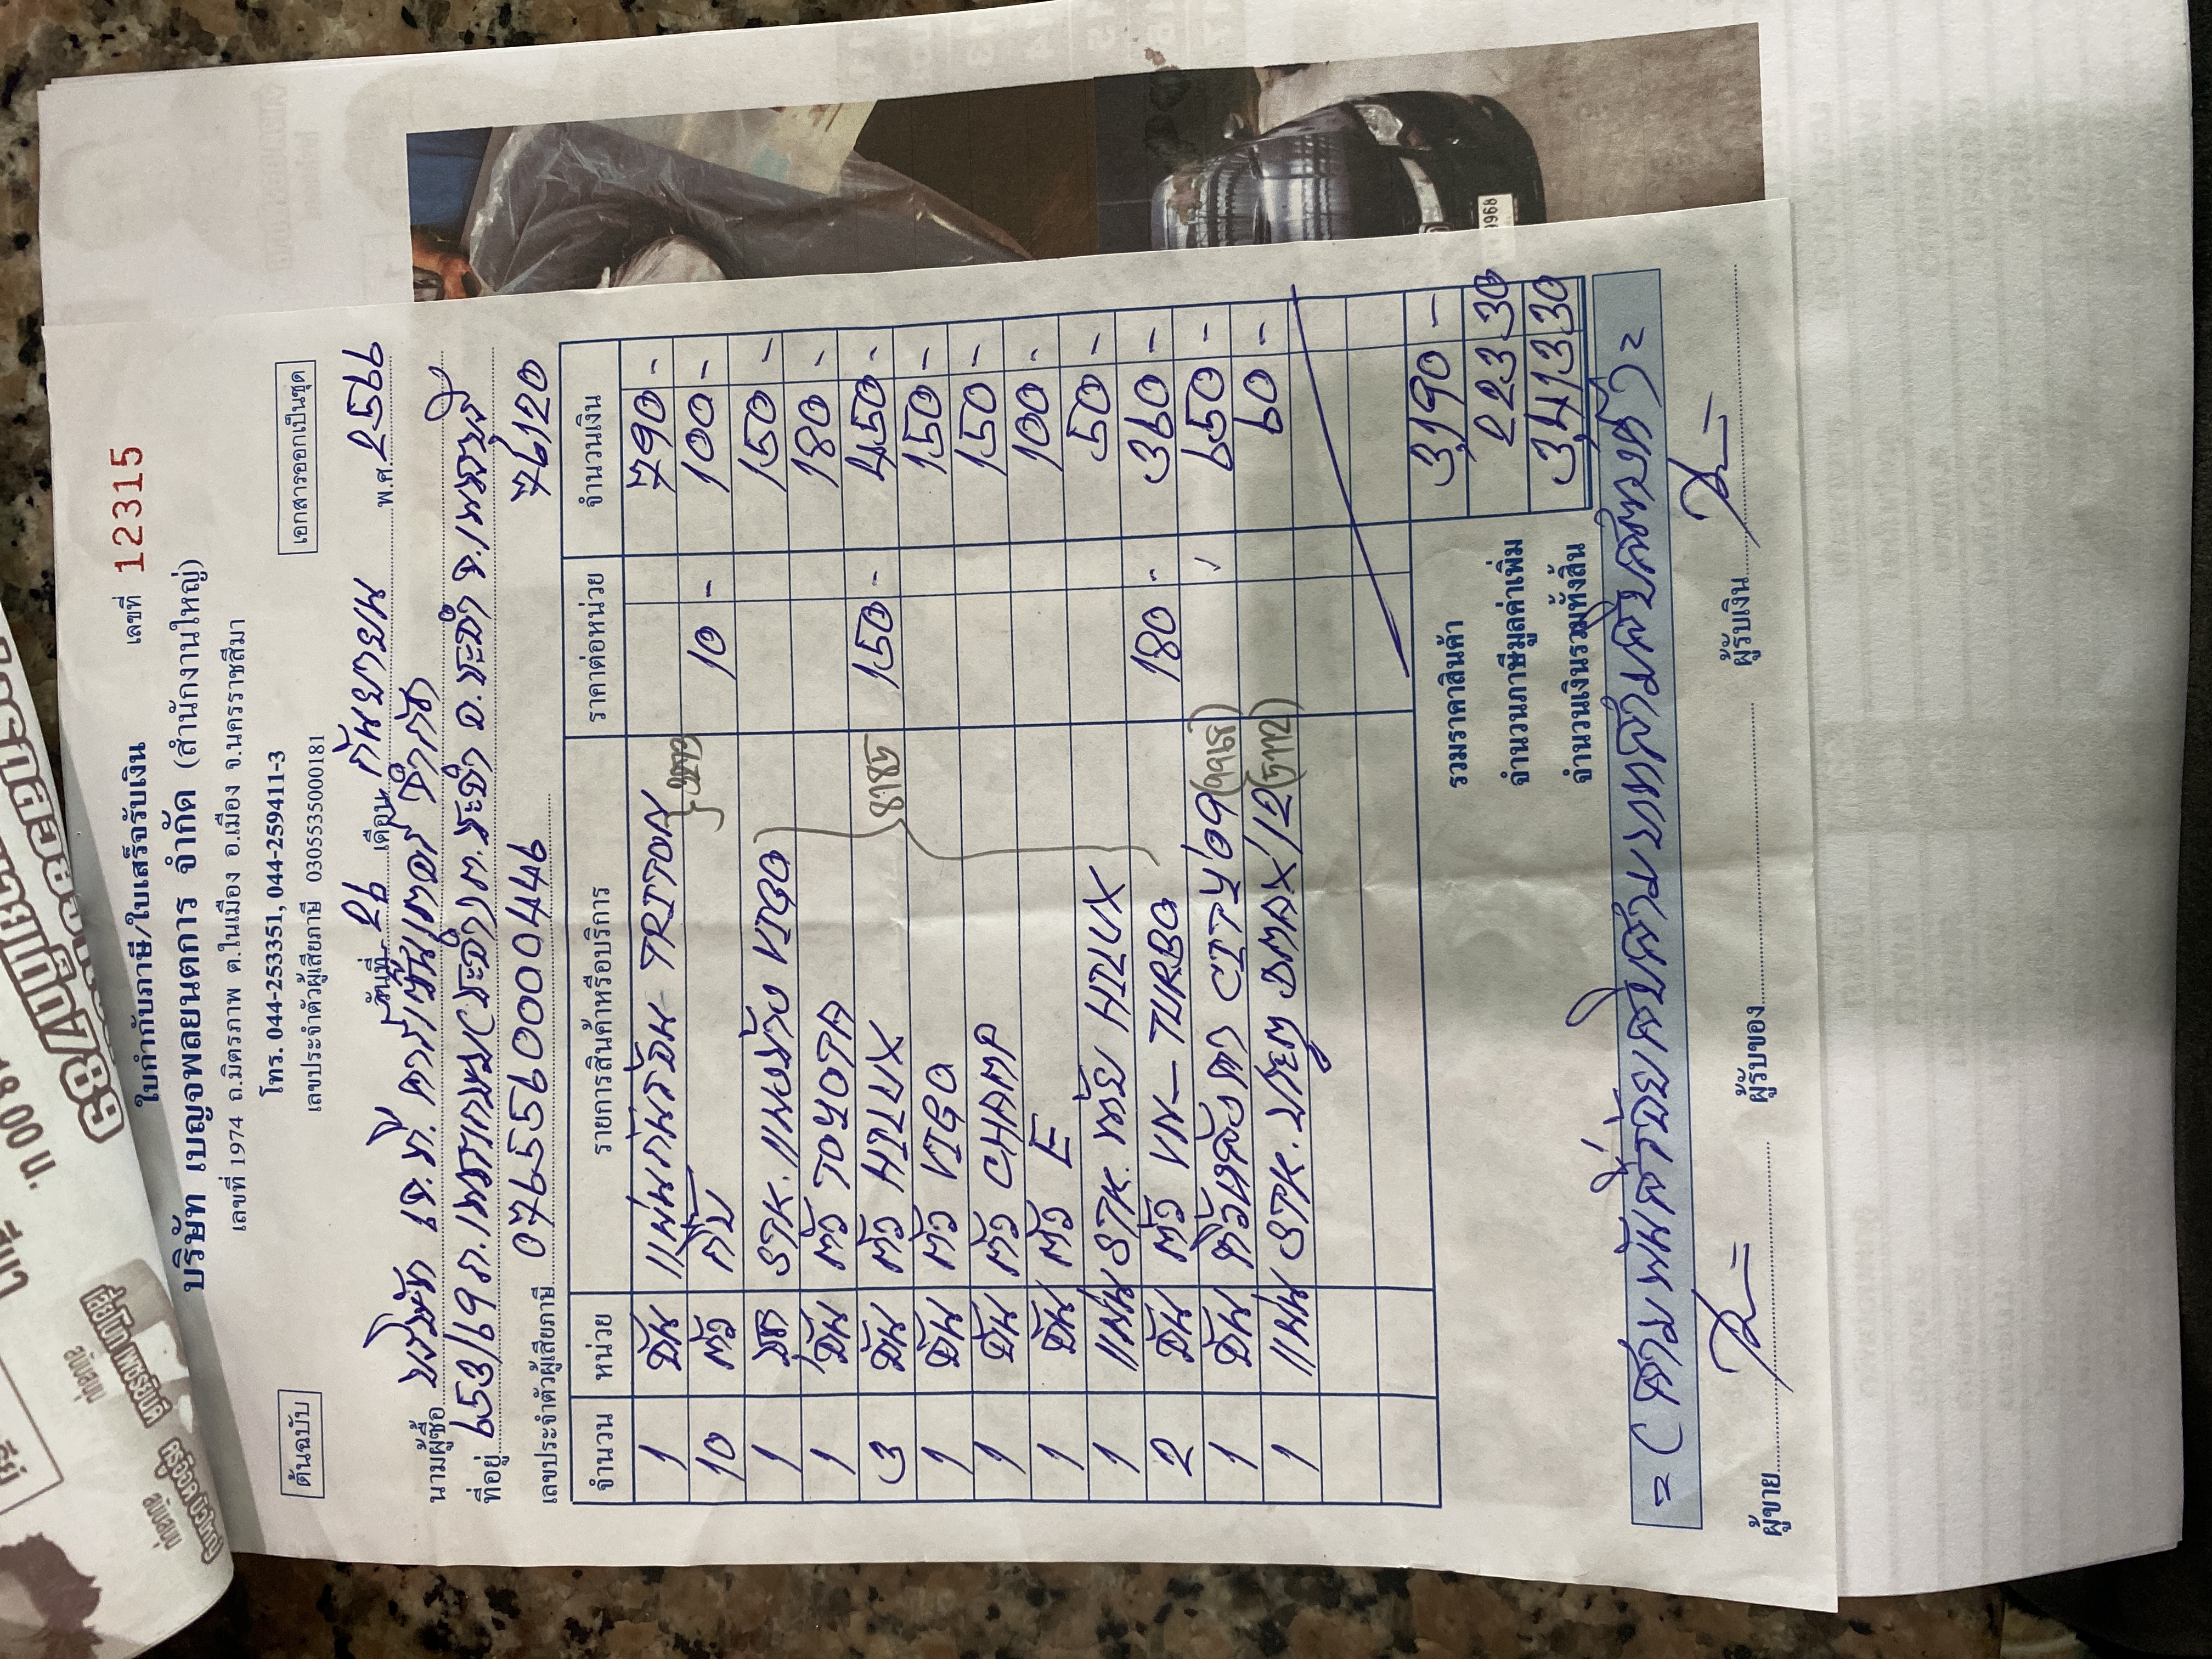 ใบกำกับภาษี/ใบเสร็จรับเงิน
เลขที่ 12315
บริษัท เบญจพลยนตการ จำกัด (สำนักงานใหญ่)
เลขที่ 1974 ถ.มิตรภาพ ต.ในเมือง อ.เมือง จ.นครราชสีมา
โทร. 044-253351, 044-259411-3
ต้นฉบับ
เลขประจำตัวผู้เสียภาษี 0305535000181
เอกสารออกเป็นชุด
วันที่ 29 เดือน กันยายน พ.ศ. 2559
นามผู้ซื้อ บริษัท เจ.ที. คาร์เซ็นเตอร์
ที่อยู่ 653/19 ถ.เพชรเกษม ต.ชะอำ อ.ชะอำ จ.เพชรบุรี
76120
เลขประจำตัวผู้เสียภาษี 0765560000446
จำนวน หน่วย รายการสินค้าหรือบริการ ราคาต่อหน่วย จำนวนเงิน
1 อัน แผ่นกันร้อน TRITON 790 -
10 ตัว กิ๊บ 10 - 100 -
1 ชุด STK. แผงข้าง VIGO 150 -
1 อัน ตัว TOYOTA 180 -
3 อัน ตัว HILUX 150 - 450 -
8185
1 อัน ตัว VIGO 150 -
1 อัน ตัว CHAMP 150 -
1 อัน ตัว E 100 -
1 แผ่น STK. ท้าย HILUX 50 -
2 อัน ตัว VN-TURBO 180 - 360 -
1 อัน CITY'09 650 -
1 แผ่น STK. DMAX/12 60 -
รวมราคาสินค้า 3,190 -
จำนวนภาษีมูลค่าเพิ่ม 223 30
จำนวนเงินรวมทั้งสิ้น 3,413 30
= (สามพันสี่ร้อยสิบสามบาทสามสิบสตางค์) =
ผู้ขาย ผู้รับของ ผู้รับเงิน